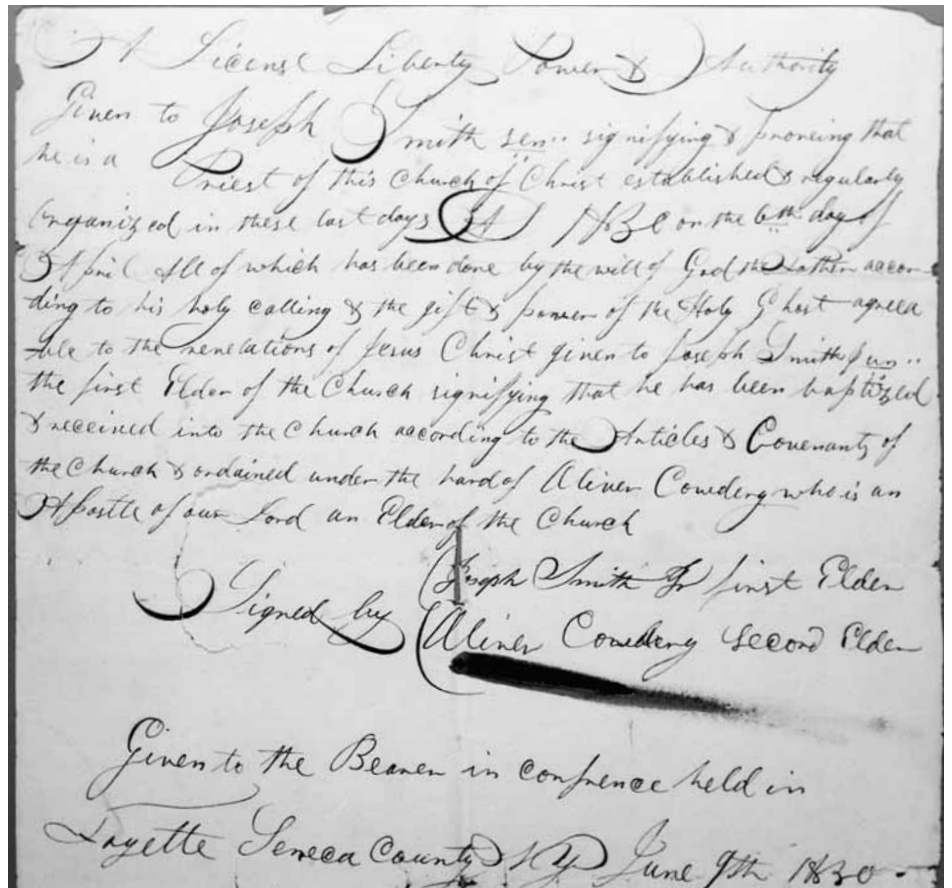 A License Liberty Power & Authority
Given to Joseph Smith sen.. signifying & proveing that
he is a Priest of this Church of Christ established & regularly
Organized in these last days AD 1830 on the 6th day of
April All of which has been done by the will of God the Father accor-
ding to his holy calling & the gift & power of the Holy Ghost agreea
ble to the revelations of Jesus Christ given to Joseph Smith jun..
the first Elder of the Church signifying that he has been baptized
& received into the Church according to the Articles & Covenants of
the Church & ordained under the hand of Oliver Cowdery who is an
Apostle of our Lord an Elder of the Church
Joseph Smith Jr first Elder
Signed by
Oliver Cowdery Second Elder
Given to the Bearer in confrence held in
Fayette Seneca County NY June 9th 1830 -